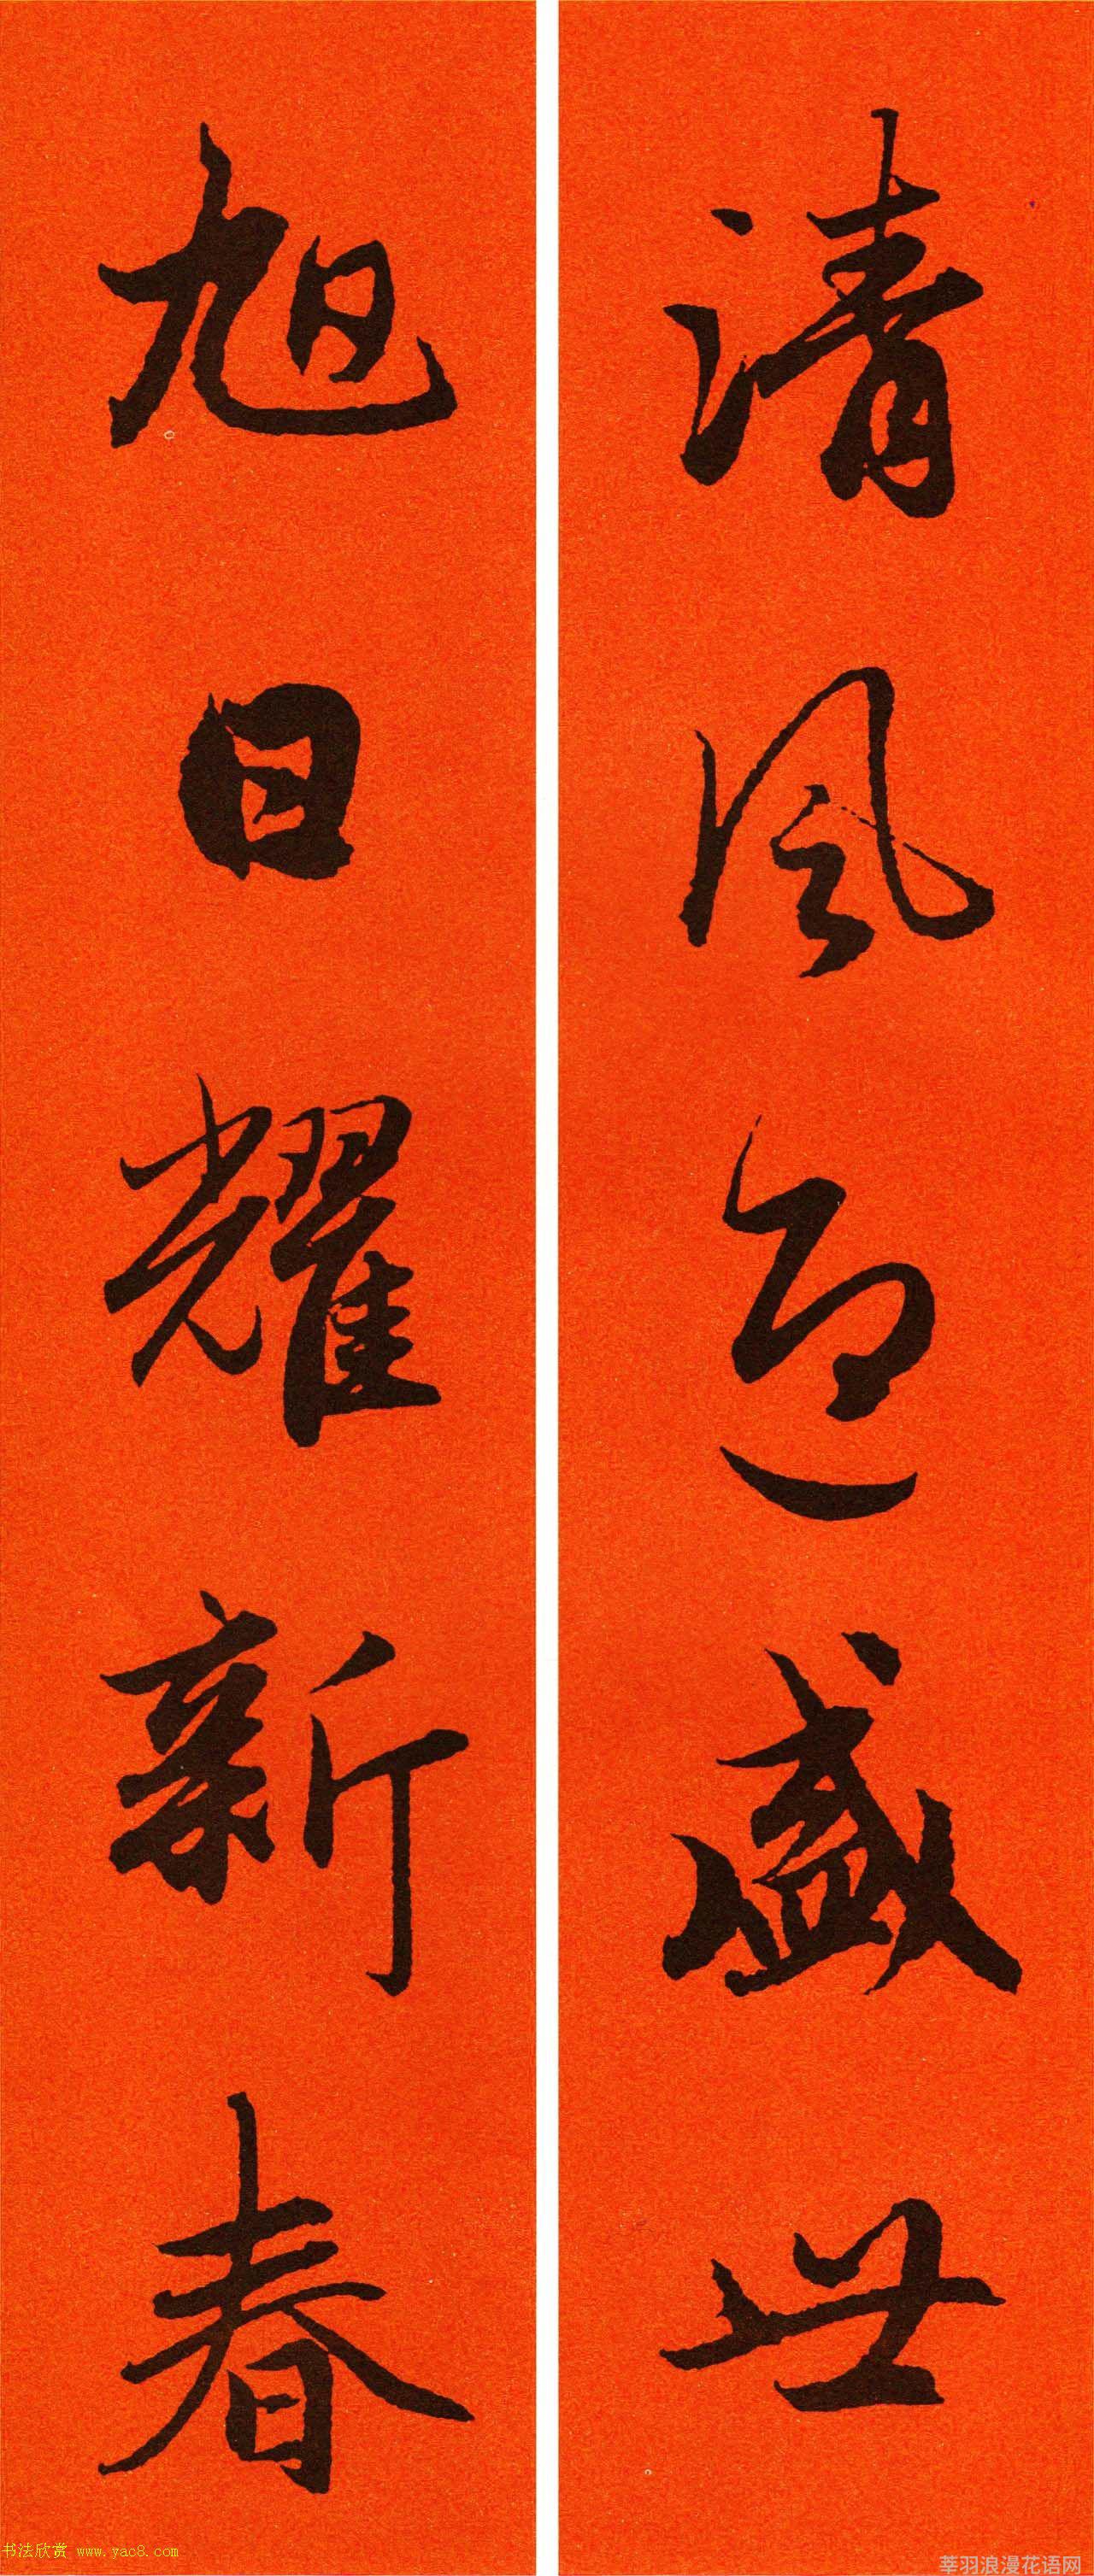 清风迎盛世
旭日耀新春
书法欣赏 www.yac8.com
莘羽浪漫花语网